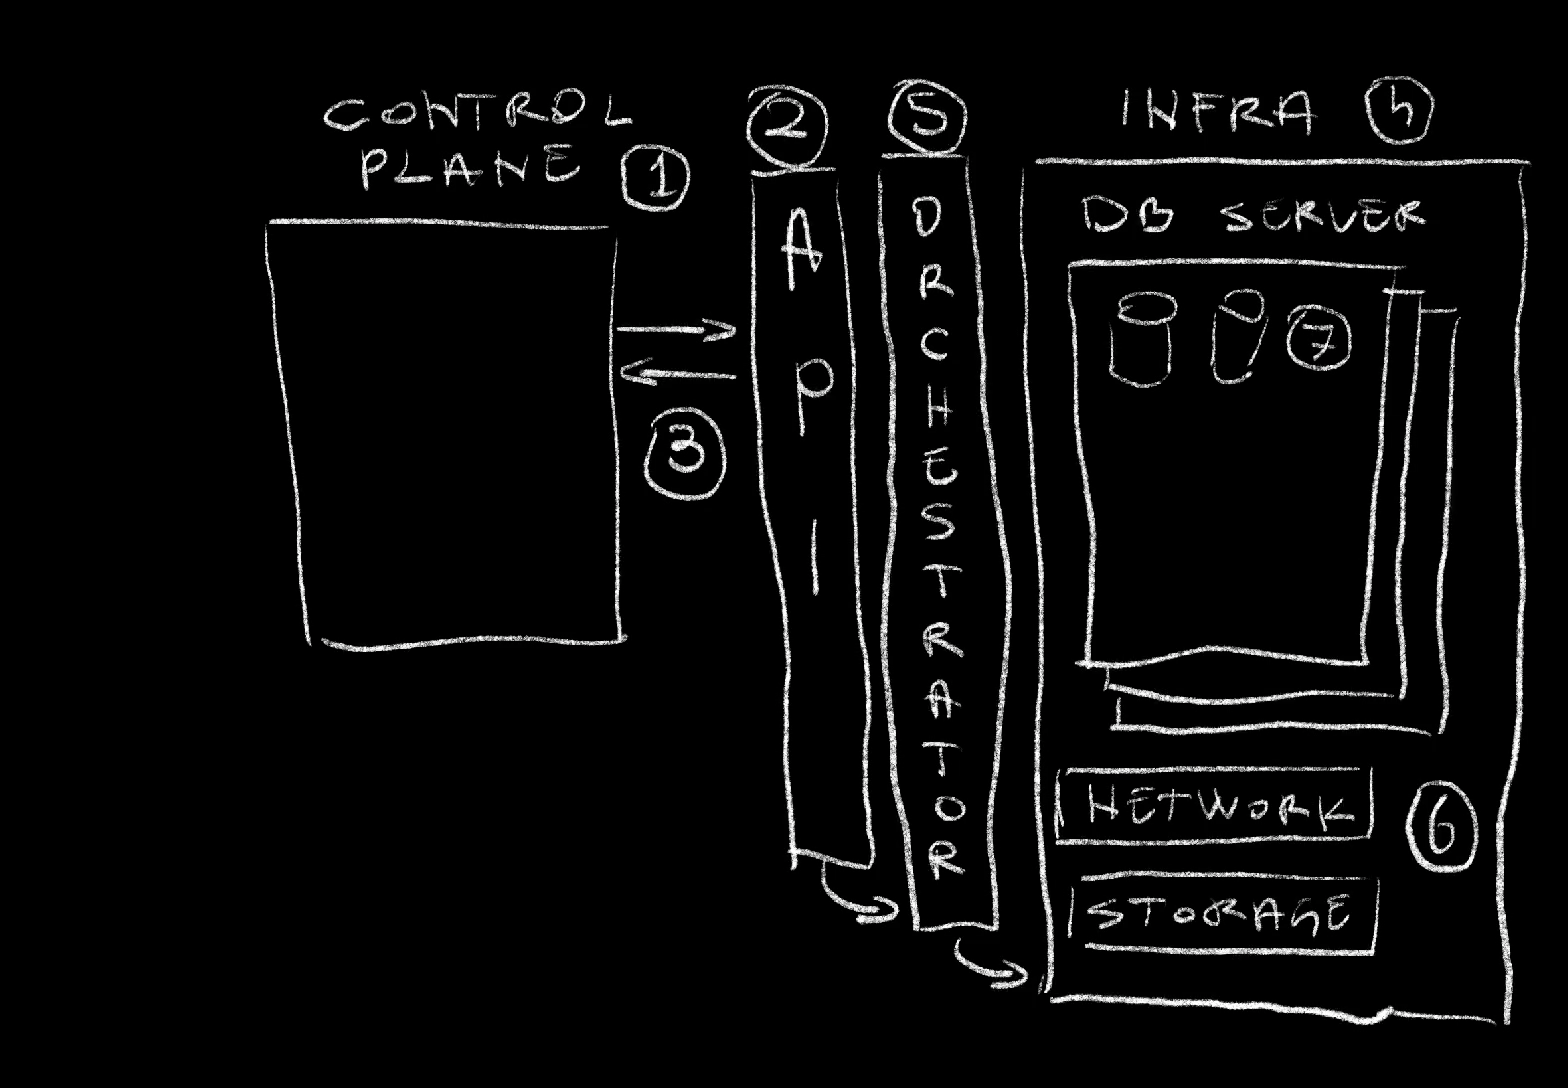 CONTROL
PLANE
1
2
API
3
5
ORCHESTRATOR
INFRA
4
DB SERVER
7
NETWORK
6
STORAGE